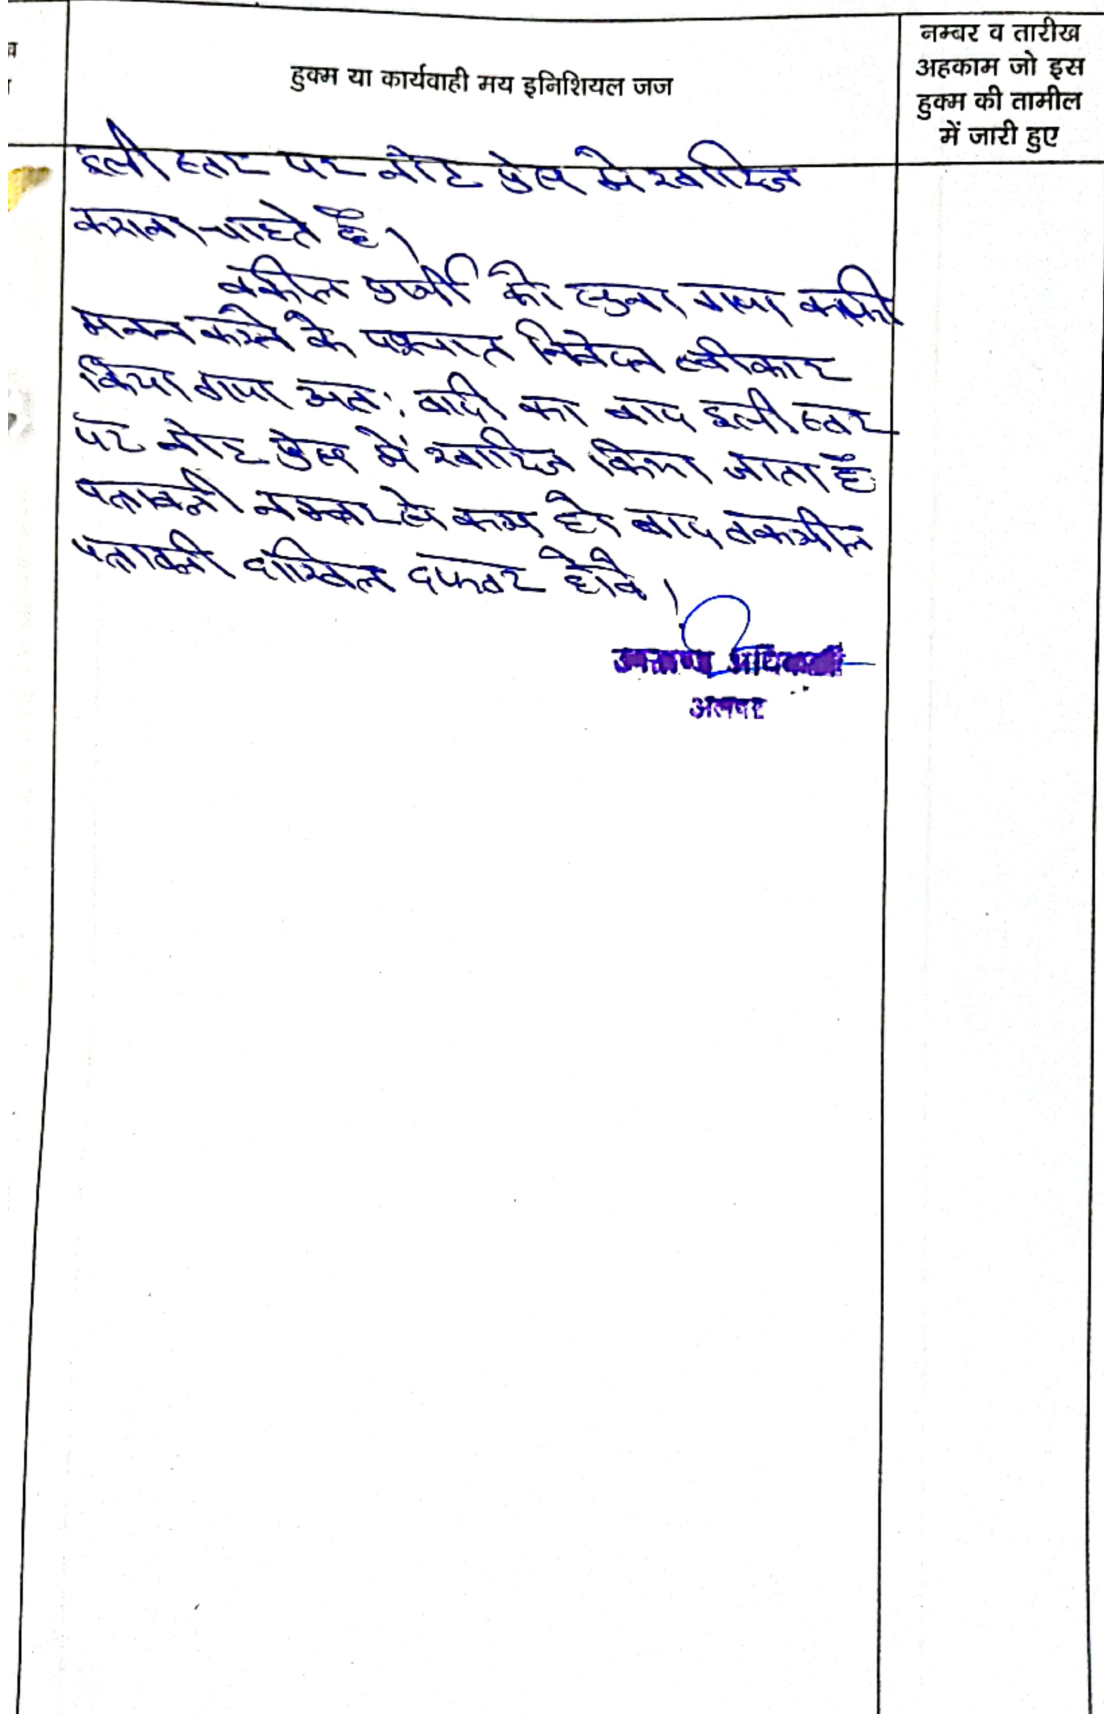 हुक्म या कार्यवाही मय इनिशियल जज
नम्बर व तारीख
अहकाम जो इस
हुक्म की तामील
में जारी हुए
इसी स्तर पर नोट प्रेस मे खारिज
कराना चाहते है।
वकील प्रार्थी को सुना गया काफी
मनन करने के पश्चात निवेदन स्वीकार
किया गया अतः वादी का वाद इसी स्तर
पर नोट प्रेस में खारिज किया जाता है
पत्रावली नम्बर से कम हो बाद तकमील
पत्रावली दाखिल दफ्तर होवे।
उपखण्ड अधिकारी
अलवर